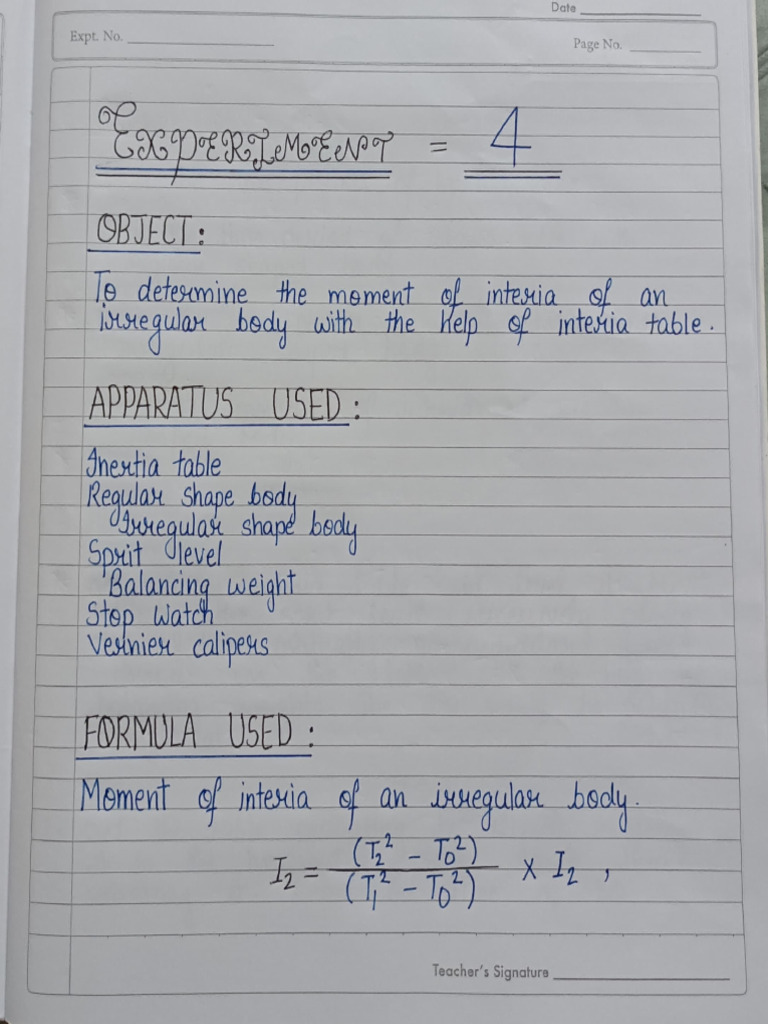 Date
Expt. No.
Page No.
EXPERIMENT = 4
OBJECT:
To determine the moment of interia of an
irregular body with the help of interia table.
APPARATUS USED:
Inertia table
Regular shape body
Irregular shape body
Sprit level
Balancing weight
Stop watch
Vernier calipers
FORMULA USED:
Moment of interia of an irregular body.
I₂ = (T₂² - T₀²) / (T₁² - T₀²) × I₂ ,
Teacher's Signature